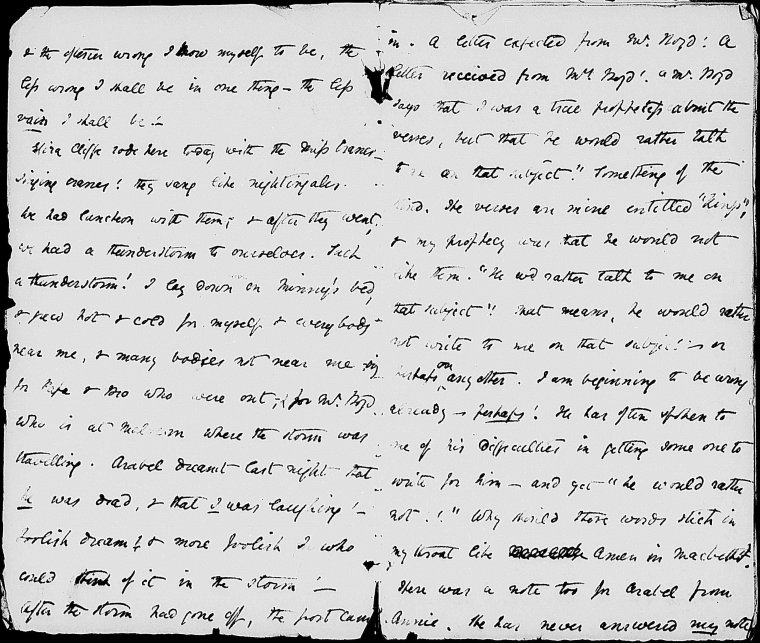 & the oftener wrong I know myself to be, the
less wrong I shall be in one thing – the less
vain I shall be! –
Eliza Cliffe rode here today with the Miss Cranes –
singing cranes! they sang like nightingales.
We had luncheon with them; & after they went,
we had a thunderstorm to ourselves. Such
a thunderstorm! I lay down on Minny's bed,
& grew hot & cold for myself & everybody
near me, & many bodies not near me –
for Papa & Bro who were out; & for Mr. Boyd
who is at Malvern where the storm was
travelling. Arabel dreamt last night that
he was dead, & that I was laughing! –
Foolish dream, & more foolish I who
could think of it in the storm! –
After the storm had gone off, the post came
in. A letter expected from Mr. Boyd! A
letter received from Mr. Boyd! & Mr. Boyd
says that I was a true prophetess about the
verses, but that he would rather talk
to me on that subject!! Something of the
kind. The verses are mine entitled "Kings",
& my prophecy was that he would not
like them. "He wd rather talk to me on
that subject"! That means, he would rather
not write to me on that subject – or
perhaps on any other. I am beginning to be wrong
already – perhaps! He has often spoken to
me of his difficulties in getting some one to
write for him – and yet – "he would rather
not!!" Why should those words stick in
my throat like Amen in Macbeth's?
There was a note too for Arabel from
Annie. He has never answered my note